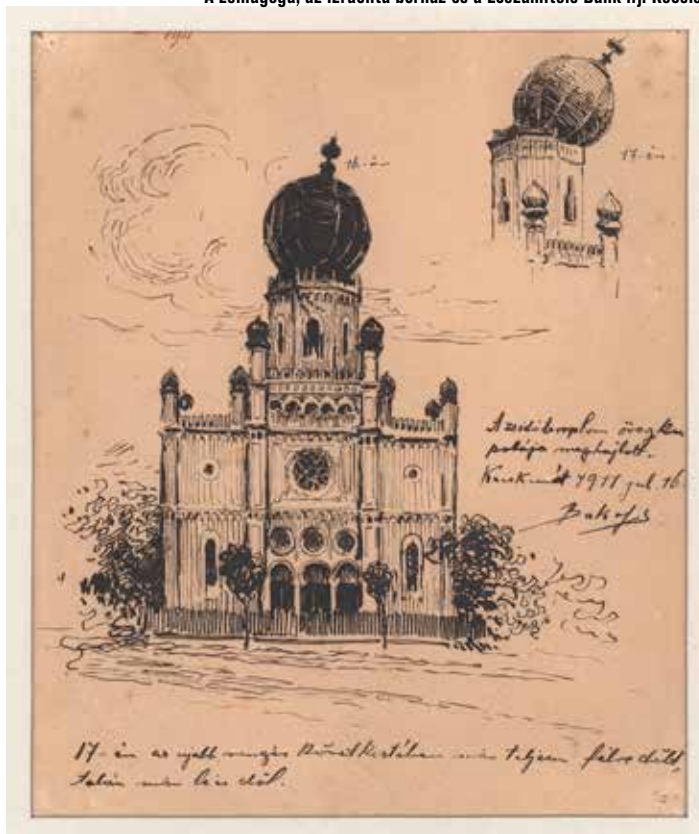 A zsinagóga, az izraelita bérház és a Leszámítoló Bank ifj.
1911
16-án
17-én.
A zsidótemplom
polája meghajlott.
Kecskemét 1911 jul. 16.
17-én az ujabb rengés következtében már teljesen félre dült,
talán már le is dől.